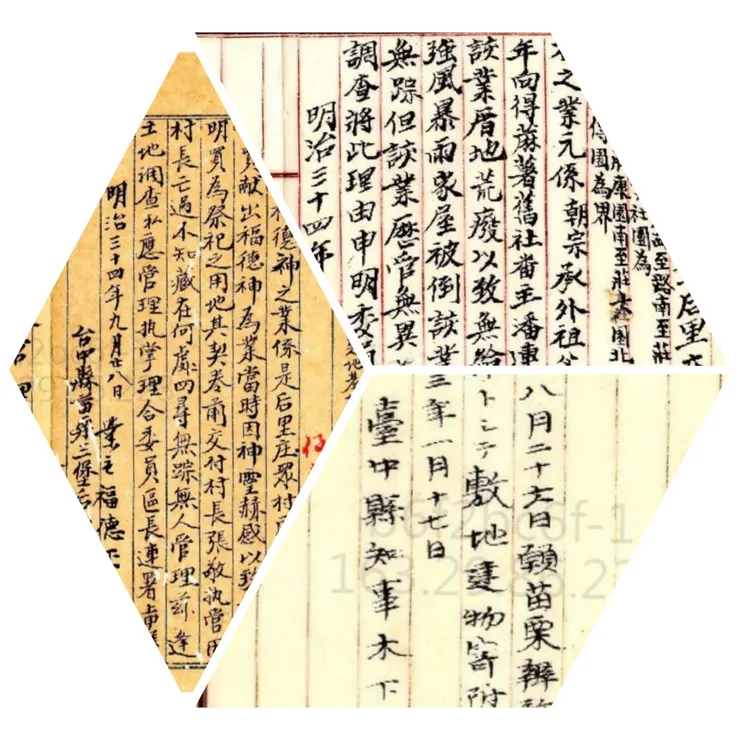 后里
至路南至莊
社園為
康園南至莊
園北
園為界
之業元係朝宗承外祖父
年向得蔴薯舊社番主潘連
該業厝地荒廢以致無給
強風暴雨家屋被倒該業
無踪但該業歷管無異
調查將此理由申明委員
明治三十四年
德神之業係是后里庄眾村
買献出福德神為業當時因神靈赫感以致
明買為祭祀之用地其契券前交付村長張敬執管因
村長亡過不知藏在何處四尋無踪無人管理茲逢
土地調查私應管理執掌理合委員區長連署
明治三十四年九月廿八日 業主福德正
台中縣苗栗三堡后
八月二十六日願苗栗辨務
トシテ敷地建物寄附
三年一月十七日
臺中縣知事木下